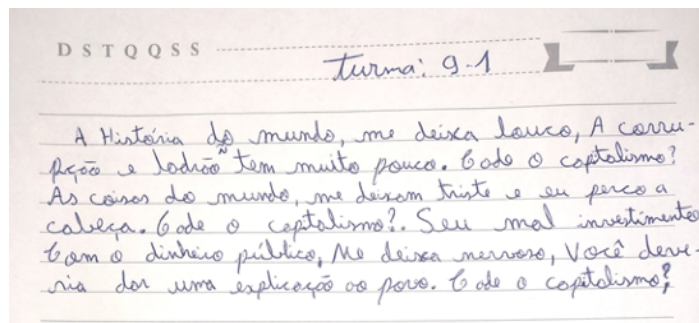 D S T Q Q S S
turma: 9-1
A História do mundo, me deixa louco, A corru-
pção e ladrão ñ tem muito pouco. Cade o capitalismo?
As coisas do mundo, me deixam triste e eu perco a
cabeça. Cade o capitalismo?. Seu mal investimento
Com o dinheiro público, Me deixa nervoso, Você deve-
ria dar uma explicação ao povo. Cade o capitalismo?